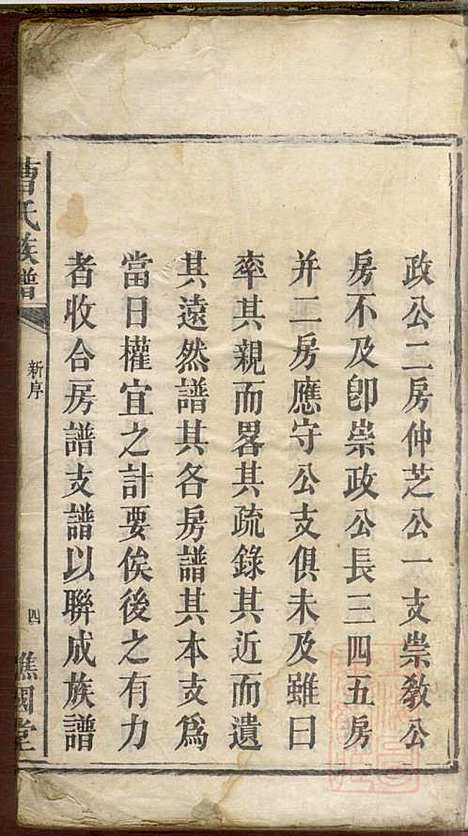 政公二房仲芝公一支崇敎公
房不及卽崇政公長三四五房
并二房應守公支俱未及雖曰
率其親而畧其疏錄其近而遺
其遠然譜其各房譜其本支爲
當日權宜之計要俟後之有力
者收合房譜支譜以聯成族譜
曹氏族譜
新序
四
譙國堂